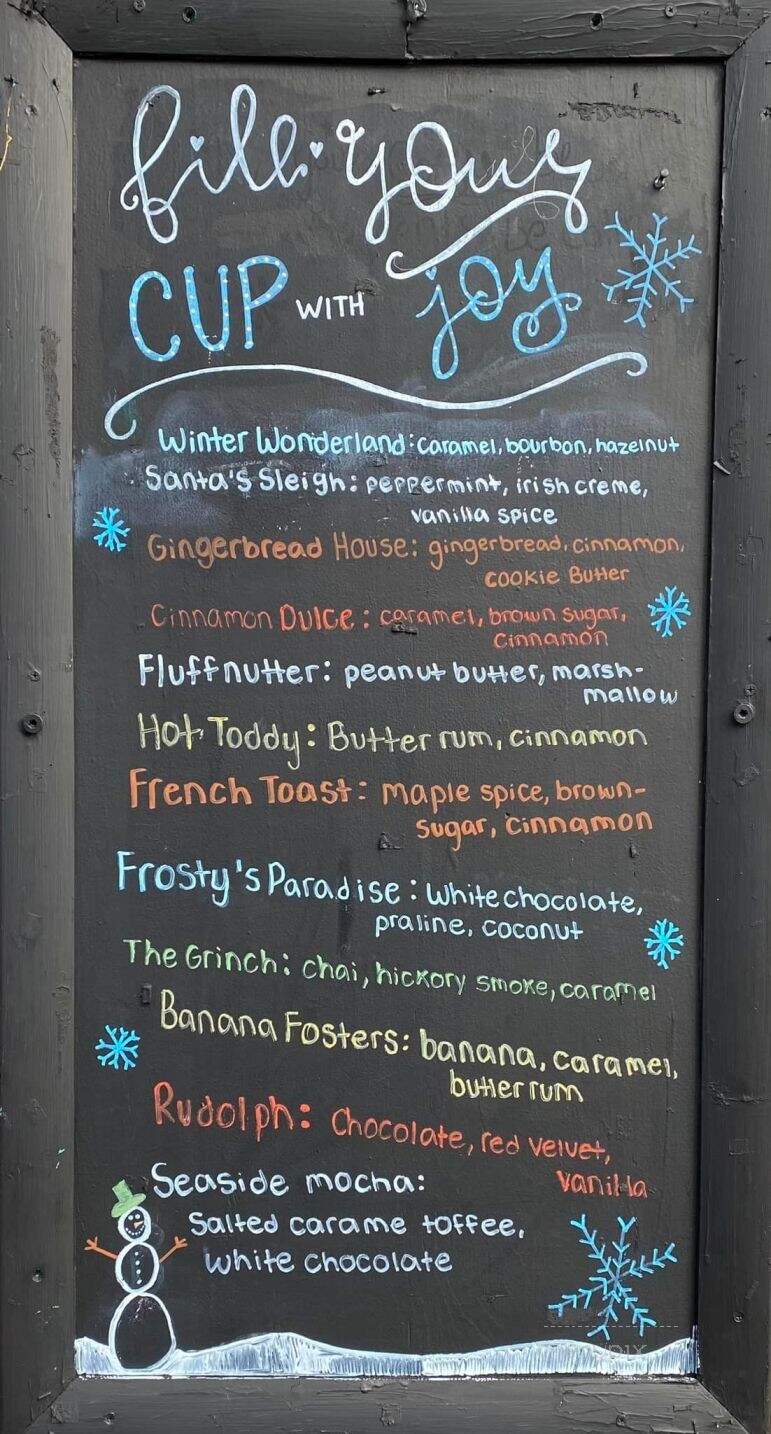 fill your
CUP WITH joy
Winter Wonderland: caramel, bourbon, hazelnut
Santa's Sleigh: peppermint, irish creme,
vanilla spice
Gingerbread House: gingerbread, cinnamon,
cookie Butter
Cinnamon Dulce: caramel, brown sugar,
cinnamon
Fluffnutter: peanut butter, marsh-
mallow
Hot Toddy: Butter rum, cinnamon
French Toast: maple spice, brown-
sugar, cinnamon
Frosty's Paradise: White chocolate,
praline, coconut
The Grinch: chai, hickory smoke, caramel
Banana Fosters: banana, caramel,
butter rum
Rudolph: Chocolate, red velvet,
vanilla
Seaside mocha:
Salted carame toffee,
White chocolate